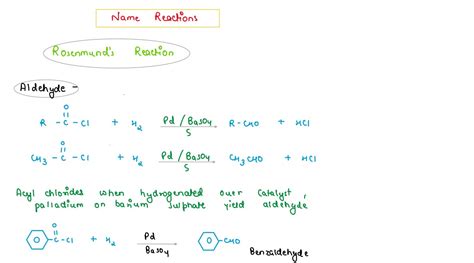 Name Reactions
Rosenmund's Reaction
Aldehyde -
O
R - C - Cl + H2 Pd / BaSO4 S R - CHO + HCl
O
CH3 - C - Cl + H2 Pd / BaSO4 S CH3CHO + HCl
Acyl chlorides when hydrogenated over catalyst,
palladium on barium sulphate yield aldehyde
O
C - Cl + H2 Pd BaSO4 CHO
Benzaldehyde